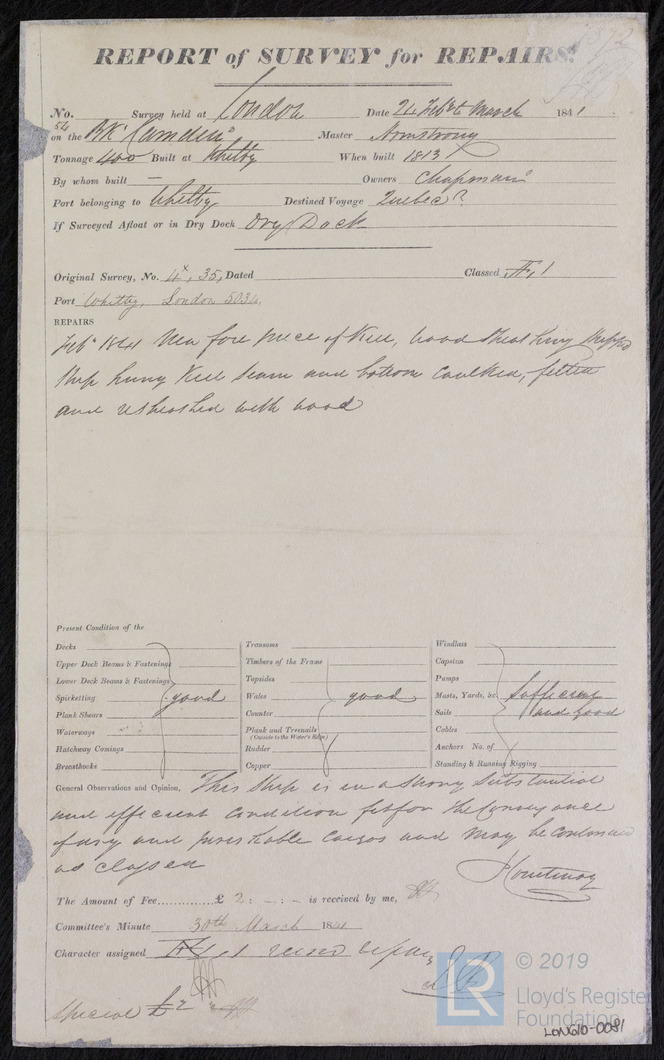 REPORT of SURVEY for REPAIRS.
No. Survey held at London Date 24 Feb. to March 1841.
54
on the Bk "Camden" Master Armstrong
Tonnage 400 Built at Whitby When built 1813
By whom built — Owners Chapman
Port belonging to Whitby Destined Voyage Quebec
If Surveyed Afloat or in Dry Dock Dry Dock
Original Survey, No. 4x, 35, Dated Classed Æ, 1
Port Whitby, London 5034.
REPAIRS
Feby 1841 New fore piece of Keel, wood sheathing stripped
Ship hung Keel seam and bottom Caulked, felted
and resheathed with wood
Present Condition of the
Decks
Upper Deck Beams & Fastenings
Lower Deck Beams & Fastenings
Spirketting good
Plank Shears
Waterways
Hatchway Comings
Breasthooks
Transoms
Timbers of the Frame
Topsides
Wales good
Counter
Plank and Treenails
(Outside to the Water's Edge)
Rudder
Copper
Windlass
Capstan
Pumps
Masts, Yards, &c. Sufficient
Sails and good
Cables
Anchors No. of
Standing & Running Rigging
General Observations and Opinion, This Ship is in a strong substantial
and efficient condition fit for the conveyance
of dry and perishable Cargos and may be continued
as classed
Courtenay
The Amount of Fee............£ 2 : – : – is received by me,
Committee's Minute 30th March 1841
Character assigned Æ, 1
Special £2
© 2019
LR
Lloyd's Register
Foundation
LON610-0081